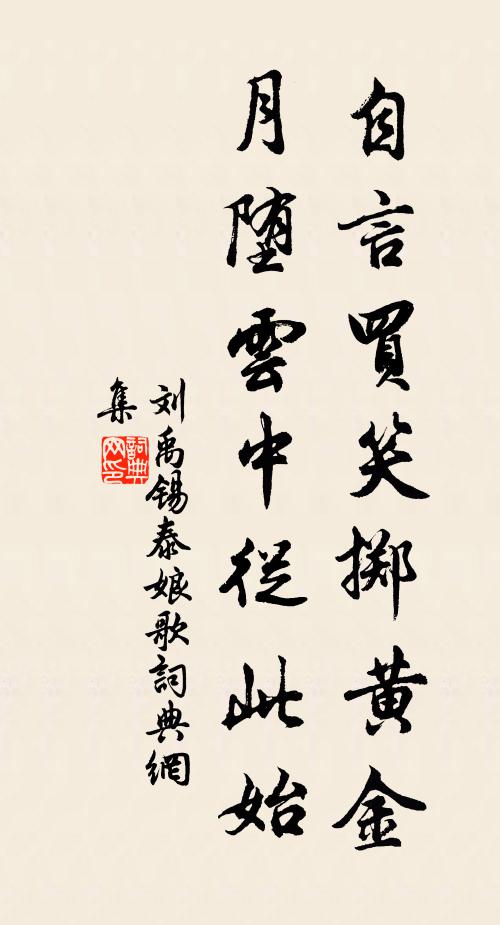 自言買笑擲黄金
月堕雲中從此始
刘禹锡泰娘歌詞典網
集
詞典网印